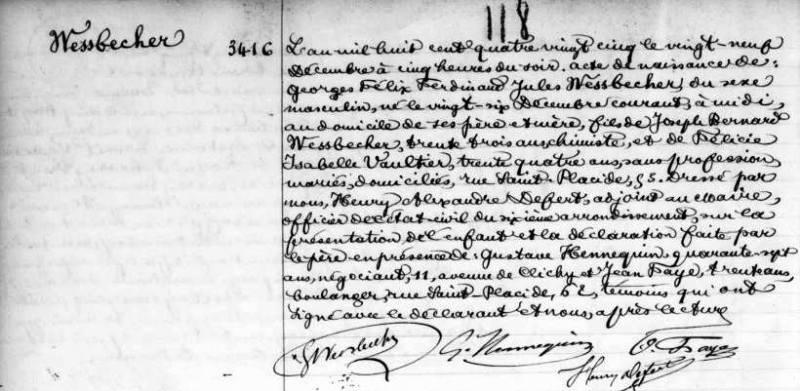 118
Wessbecher
3416
L'an mil huit cent quatre vingt cinq le vingt-neuf
Décembre à cinq heures du soir, acte de naissance de:
Georges Félix Ferdinand Jules Wessbecher, du sexe
masculin, né le vingt-six Décembre courant, à midi,
au domicile de ses père et mère, fils de Joseph Bernard
Wessbecher, trente trois ans, chimiste, et de Félicie
Isabelle Vaultier, trente quatre ans, sans profession,
mariés, domiciliés, rue Saint-Placide, 55. Dressé par
nous, Henry Alexandre Defert, adjoint au Maire,
officier de l'état-civil du sixième arrondissement, sur la
présentation de l'enfant et la déclaration faite par
le père en présence de: Gustave Hennequin, quarante-sept
ans, négociant, 11, avenue de Clichy et Jean Faye, trente ans,
boulanger, rue Saint-Placide, 62, témoins qui ont
signé avec le déclarant et nous, après lecture
Wessbecher G. Hennequin Faye
Henry Defert